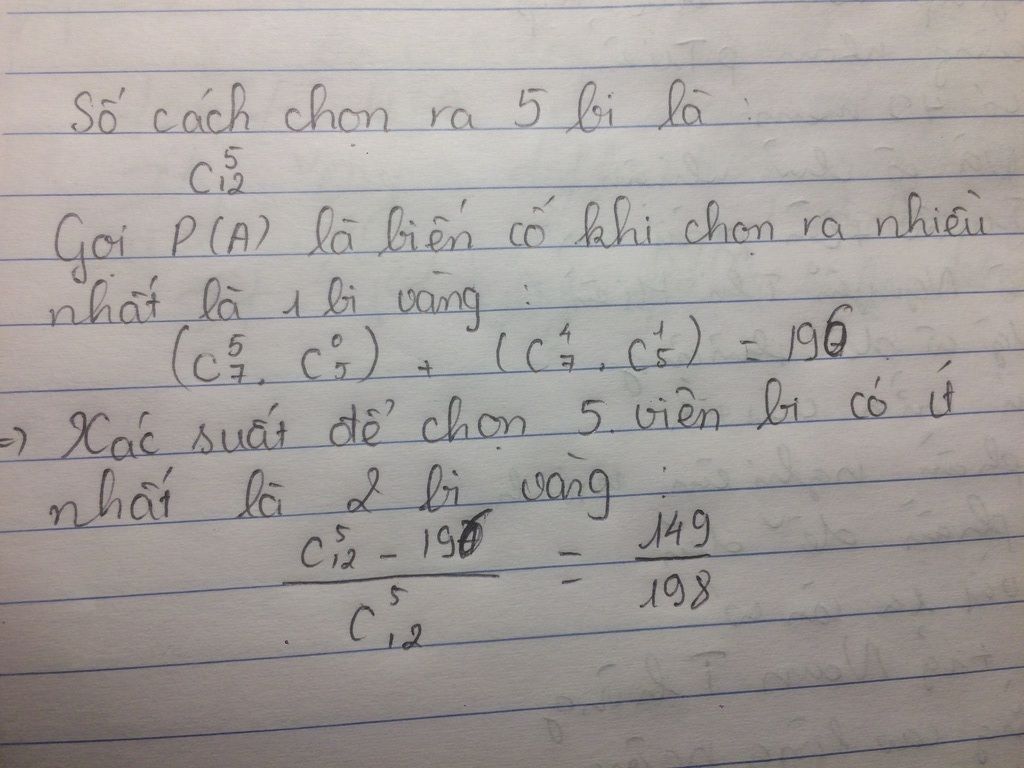 Số cách chọn ra 5 bi là :
C₁₂⁵
Gọi P(A) là biến cố khi chọn ra nhiều
nhất là 1 bi vàng :
(C₇⁵ . C₅⁰) + (C₇⁴ . C₅¹) = 196
=) Xác suất để chọn 5 viên bi có ít
nhất là 2 bi vàng :
(C₁₂⁵ - 196) / C₁₂⁵ = 149 / 198